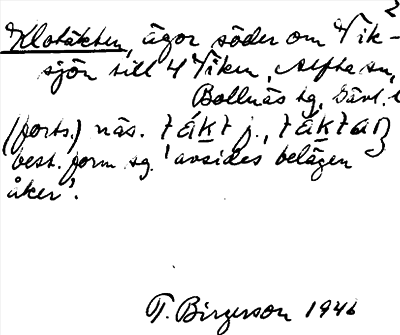 2
Klotäkten, ägor söder om Vik-
sjön till 4 Viken, Alfta sn,
Bollnäs tg, Gävl. l
(forts.) näs. tákt j., táktaɳ
best. form sg. 'avsides belägen
åker'.
T. Birgerson 1946